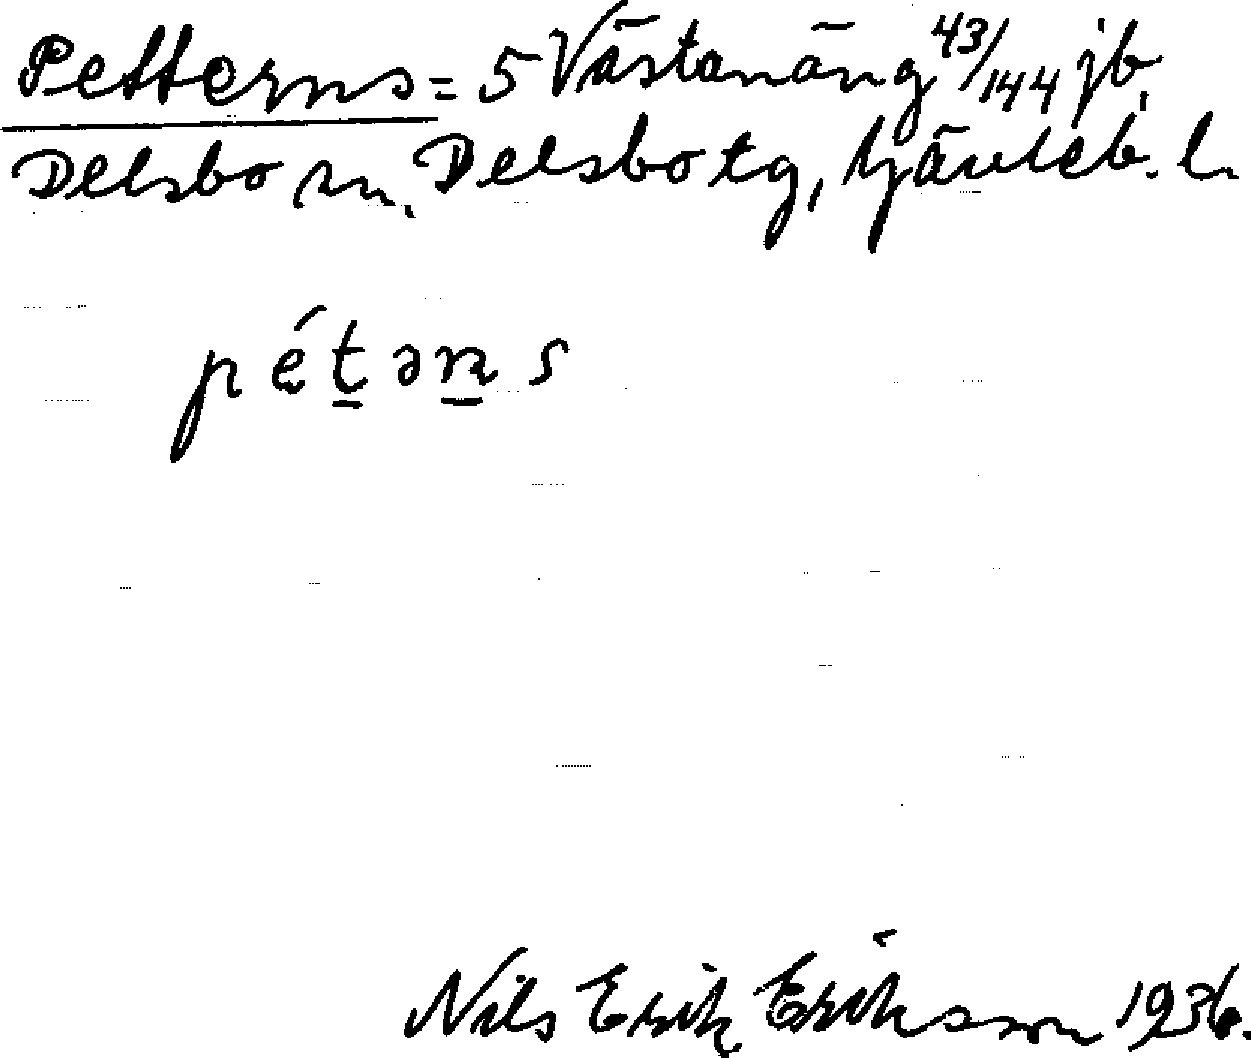 Petterns = 5 Västanäng 43/144 jb,
Delsbo sn, Delsbo tg, Gävleb. l.
pétəns
Nils Erik Eriksson 1936.